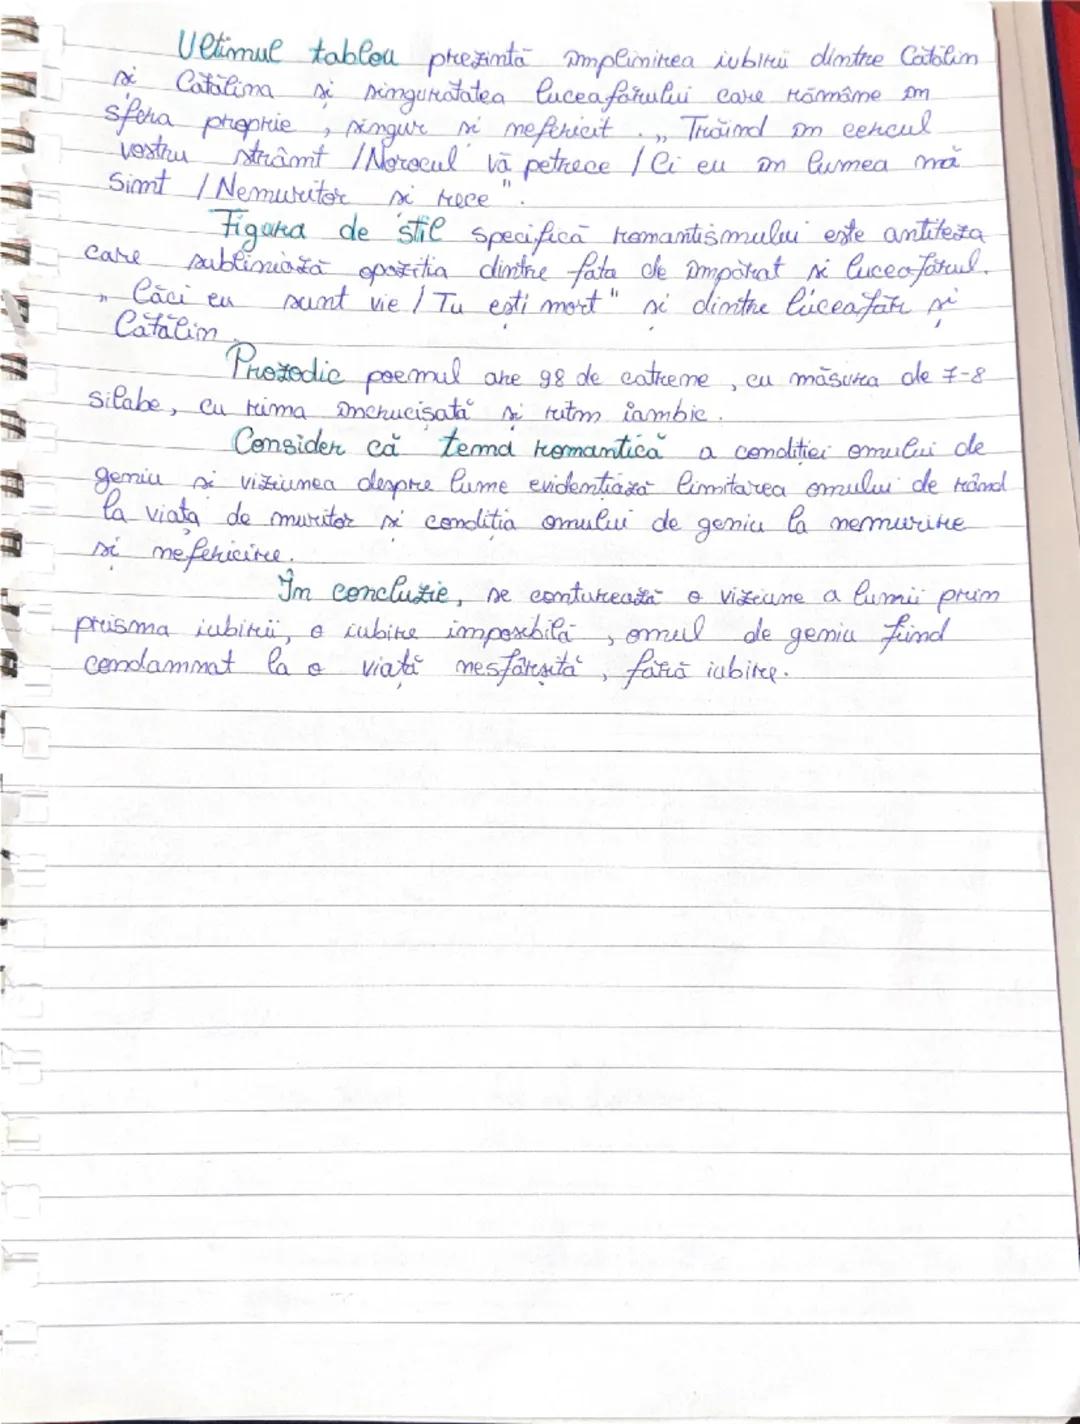 Ultimul tablou prezintă împlinirea iubirii dintre Cătălin
și Cătălina și singurătatea luceafărului care rămâne în
sfera proprie, singur și nefericit. „Trăind în cercul
vostru strâmt /Norocul vă petrece / Ci eu în lumea mă
simt /Nemuritor și rece".
Figura de stil specifică romantismului este antiteza
care subliniază opoziția dintre fata de împărat și luceafărul.
„Căci eu sunt vie / Tu ești mort" și dintre luceafăr și
Cătălin.
Prozodic poemul are 98 de catrene, cu măsura de 7-8
silabe, cu rima încrucișată și ritm iambic.
Consider că tema romantică a condiției omului de
geniu și viziunea despre lume evidențiază limitarea omului de rând
la viața de muritor și condiția omului de geniu la nemurire
și nefericire.
În concluzie, se conturează o viziune a lumii prin
prisma iubirii, o iubire imposibilă, omul de geniu fiind
condamnat la o viață nesfârșită, fără iubire.